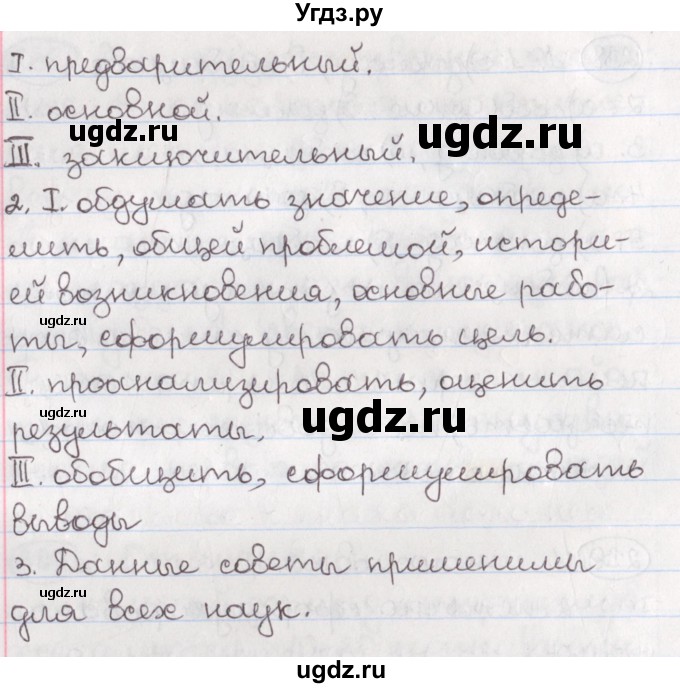 Угдз.ру
I. предварительный.
II. основной.
ugdz.ru
ugdz.ru
III. заключительный.
2. I. обдумать значение, опреде-
лить, общей проблемой, истори-
ugdz.ru
ей возникновения, основные рабо-
ugdz.ru
ты, сформулировать цель.
II. проанализировать, оценить
ugdz.ru
ugdz.ru
результаты.
III. обобщить, сформулировать
выводы
3. Данные советы применимы
ugdz.ru
для всех наук.
ugdz.ru